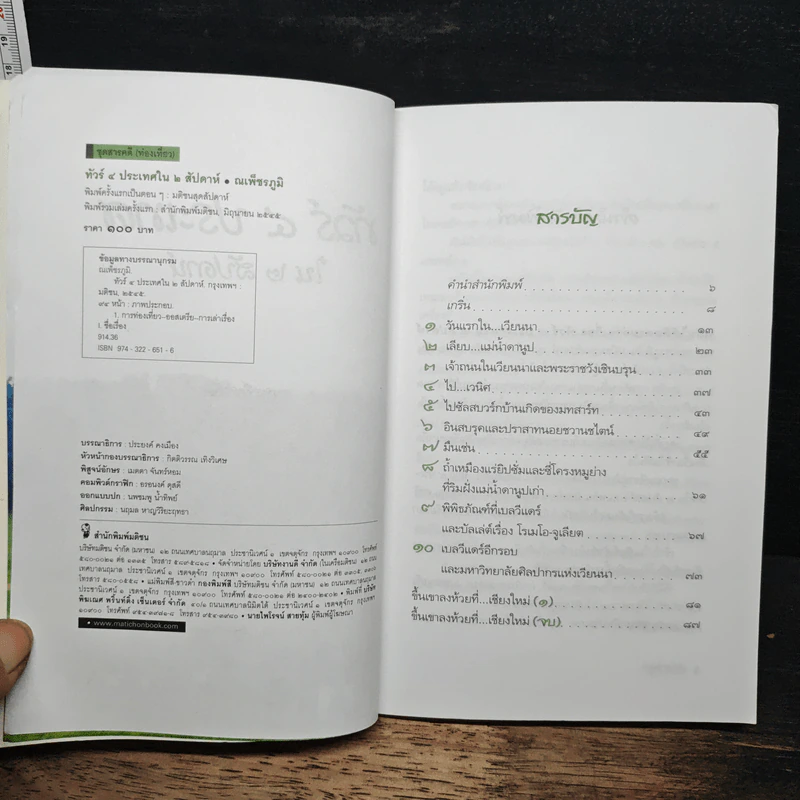 ชุดสารคดี (ท่องเที่ยว)
ทัวร์ ๔ ประเทศใน ๒ สัปดาห์ • ณเพ็ชรภูมิ
พิมพ์ครั้งแรกเป็นตอน ๆ : มติชนสุดสัปดาห์
พิมพ์รวมเล่มครั้งแรก : สำนักพิมพ์มติชน, มิถุนายน ๒๕๔๕
ราคา ๑๐๐ บาท
ข้อมูลทางบรรณานุกรม
ณเพ็ชรภูมิ
ทัวร์ ๔ ประเทศใน ๒ สัปดาห์. กรุงเทพฯ :
มติชน, ๒๕๔๕.
๙๔ หน้า : ภาพประกอบ.
1. การท่องเที่ยว-ออสเตรีย-การเล่าเรื่อง
I. ชื่อเรื่อง
914.36
ISBN 974 - 322 - 651 - 6
บรรณาธิการ : ประยงค์ คงเมือง
หัวหน้ากองบรรณาธิการ : กิตติวรรณ เทิงวิเศษ
พิสูจน์อักษร : เมตตา จันทร์หอม
คอมพิวเตอร์กราฟิก : อรอนงค์ ดุสดี
ออกแบบปก : นพชมพู น้ำทิพย์
ศิลปกรรม : นฤมล หาญวิริยะฤทธา
สำนักพิมพ์มติชน
บริษัทมติชน จำกัด (มหาชน) ๑๒ ถนนเทศบาลนฤมาล ประชานิเวศน์ ๑ เขตจตุจักร กรุงเทพฯ ๑๐๙๐๐ โทรศัพท์
www.matichonbook.com
สารบัญ
คำนำสำนักพิมพ์ ๖
เกริ่น ๘
๑ วันแรกใน...เวียนนา ๑๓
๒ เลียบ...แม่น้ำดานูป ๒๓
๓ เจ้าถนนในเวียนนาและพระราชวังเชินบรุน ๓๓
๔ ไป...เวนิศ ๓๗
๕ ไปซัลสบวร์กบ้านเกิดของมทสาร์ท ๔๓
๖ อินสบรุคและปราสาทนอยชวานชไตน์ ๔๙
๗ มืนเช่น ๕๕
๘ ถ้ำเหมืองแร่ยิปซั่มและซี่โครงหมูย่าง
ที่ริมฝั่งแม่น้ำดานูปเก่า ๖๑
๙ พิพิธภัณฑ์ที่เบลวีแดร์
และบัลเล่ต์เรื่อง โรเมโอ-จูเลียต ๖๗
๑๐ เบลวีแดร์อีกรอบ
และมหาวิทยาลัยศิลปากรแห่งเวียนนา ๗๓
ขึ้นเขาลงห้วยที่...เชียงใหม่ (๑) ๘๑
ขึ้นเขาลงห้วยที่...เชียงใหม่ (จบ) ๘๗